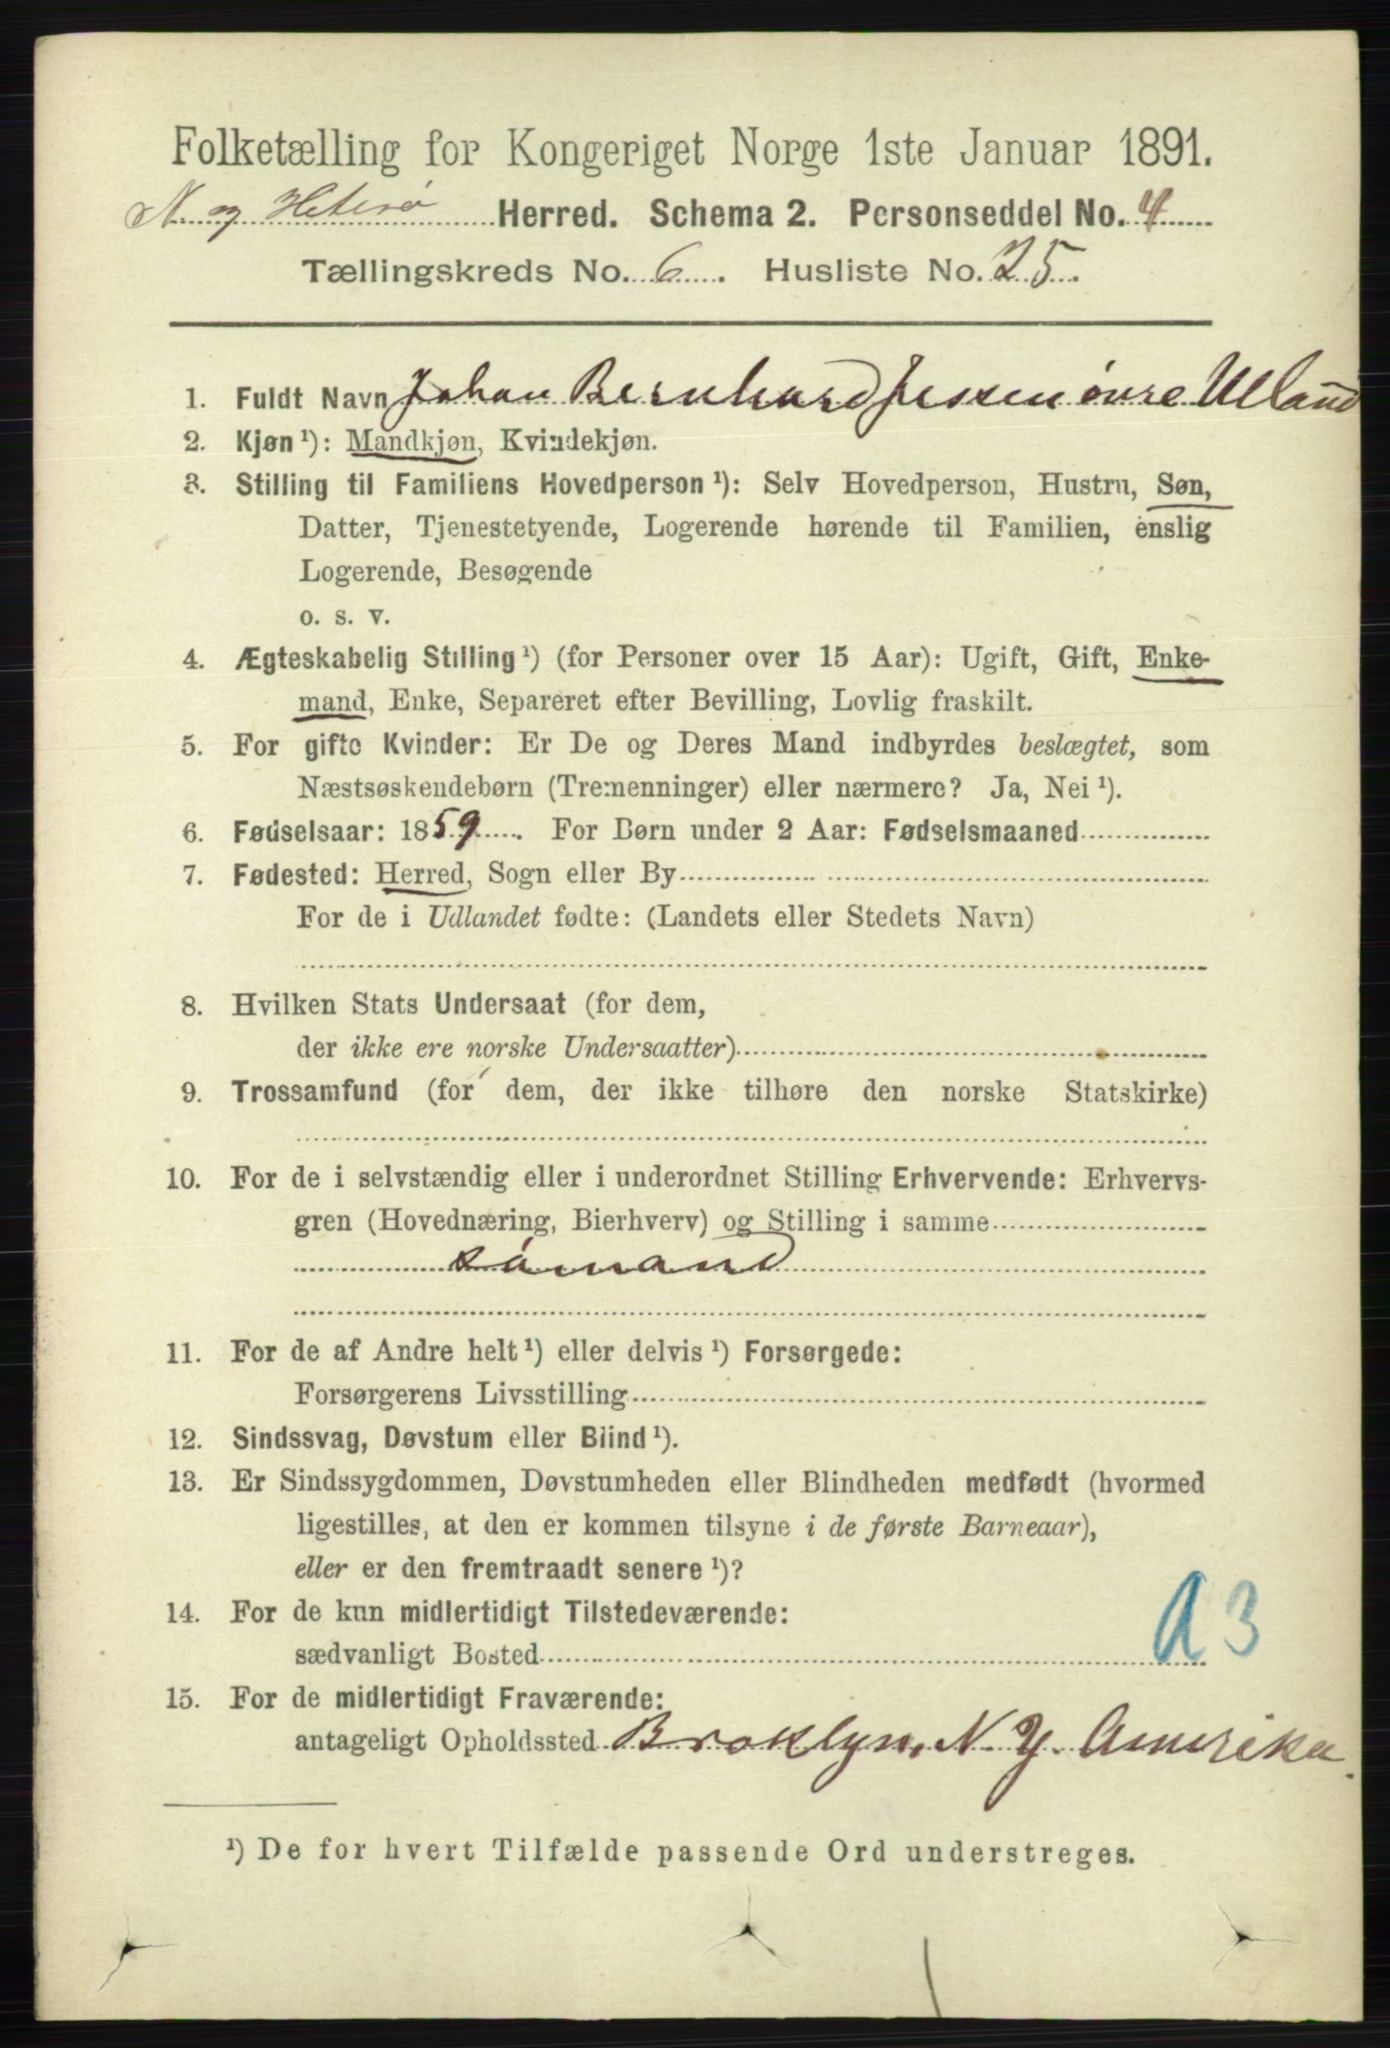 Folketælling for Kongeriget Norge 1ste Januar 1891.
N. og Hiterø Herred. Schema 2. Personseddel No. 4
Tællingskreds No. 6. Husliste No. 25.
1. Fuldt Navn Johan Bernhard Jessen øvre Ueland
2. Kjøn¹): Mandkjøn, Kvindekjøn.
3. Stilling til Familiens Hovedperson¹): Selv Hovedperson, Hustru, Søn,
Datter, Tjenestetyende, Logerende hørende til Familien, enslig
Logerende, Besøgende
o. s. v.
4. Ægteskabelig Stilling¹) (for Personer over 15 Aar): Ugift, Gift, Enke-
mand, Enke, Separeret efter Bevilling, Lovlig fraskilt.
5. For gifte Kvinder: Er De og Deres Mand indbyrdes beslægtet, som
Næstsøskendebørn (Tremenninger) eller nærmere? Ja, Nei¹).
6. Fødselsaar: 1859. For Børn under 2 Aar: Fødselsmaaned
7. Fødested: Herred, Sogn eller By
For de i Udlandet fødte: (Landets eller Stedets Navn)
8. Hvilken Stats Undersaat (for dem,
der ikke ere norske Undersaatter)
9. Trossamfund (for dem, der ikke tilhøre den norske Statskirke)
10. For de i selvstændig eller i underordnet Stilling Erhvervende: Erhvervs-
gren (Hovednæring, Bierhverv) og Stilling i samme
sømand
11. For de af Andre helt¹) eller delvis¹) Forsørgede:
Forsørgerens Livsstilling
12. Sindssvag, Døvstum eller Blind¹).
13. Er Sindssygdommen, Døvstumheden eller Blindheden medfødt (hvormed
ligestilles, at den er kommen tilsyne i de første Barneaar),
eller er den fremtraadt senere¹)?
14. For de kun midlertidigt Tilstedeværende:
sædvanligt Bosted
a 3
15. For de midlertidigt Fraværende:
antageligt Opholdssted Broklyn, N. Y. Amerika.
¹) De for hvert Tilfælde passende Ord understreges.